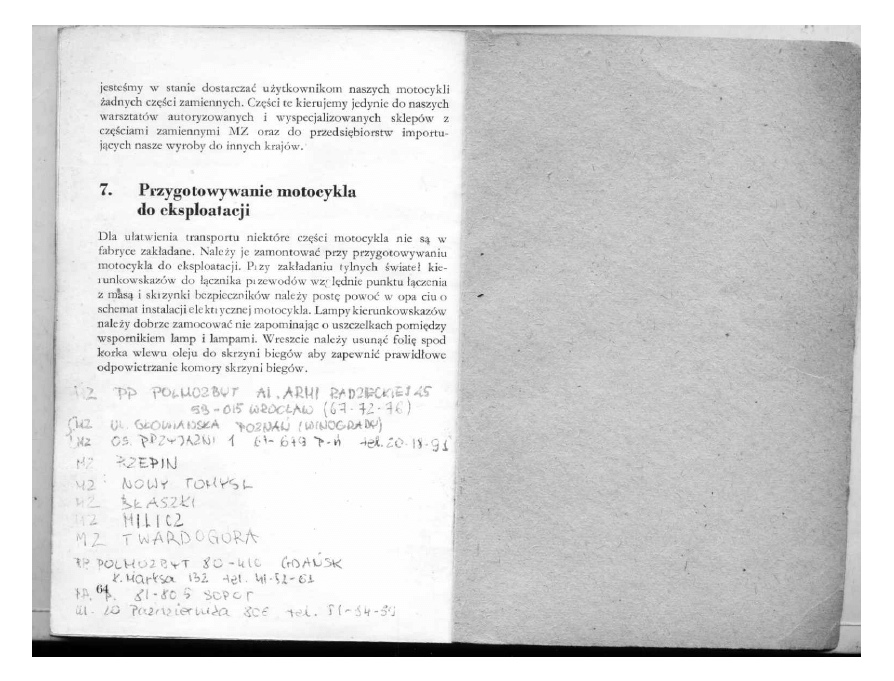 jesteśmy w stanie dostarczać użytkownikom naszych motocykli
żadnych części zamiennych. Części te kierujemy jedynie do naszych
warsztatów autoryzowanych i wyspecjalizowanych sklepów z
częściami zamiennymi MZ oraz do przedsiębiorstw importu-
jących nasze wyroby do innych krajów.
7. Przygotowywanie motocykla
do eksploatacji
Dla ułatwienia transportu niektóre części motocykla nie są w
fabryce zakładane. Należy je zamontować przy przygotowywaniu
motocykla do eksploatacji. Przy zakładaniu tylnych świateł kie-
runkowskazów do łącznika przewodów względnie punktu łączenia
z masą i skrzynki bezpieczników należy postępowoć w opa ciu o
schemat instalacji elektrycznej motocykla. Lampy kierunkowskazów
należy dobrze zamocować nie zapominając o uszczelkach pomiędzy
wspornikiem lamp i lampami. Wreszcie należy usunąć folię spod
korka wlewu oleju do skrzyni biegów aby zapewnić prawidłowe
odpowietrzanie komory skrzyni biegów.
MZ PP POLMOZBYT Al. ARMI RADZIECKIEJ 45
59-015 WROCŁAW (67-72-76)
MZ UL. GŁOWIAŃSKA POZNAŃ (WINOGRADY)
MZ OS. PRZYJAŹNI 1 61-679 P-ń tel. 20-18-91
MZ RZEPIN
MZ NOWY TOMYSL
MZ BŁASZKI
MZ MILICZ
MZ TWARDOGÓRA
PP POLMOZBYT 80-410 GDAŃSK
K. Marksa 132 tel. 41-52-61
64
81-805 SOPOT
Ul. 20 Października 806 tel. 51-34-59